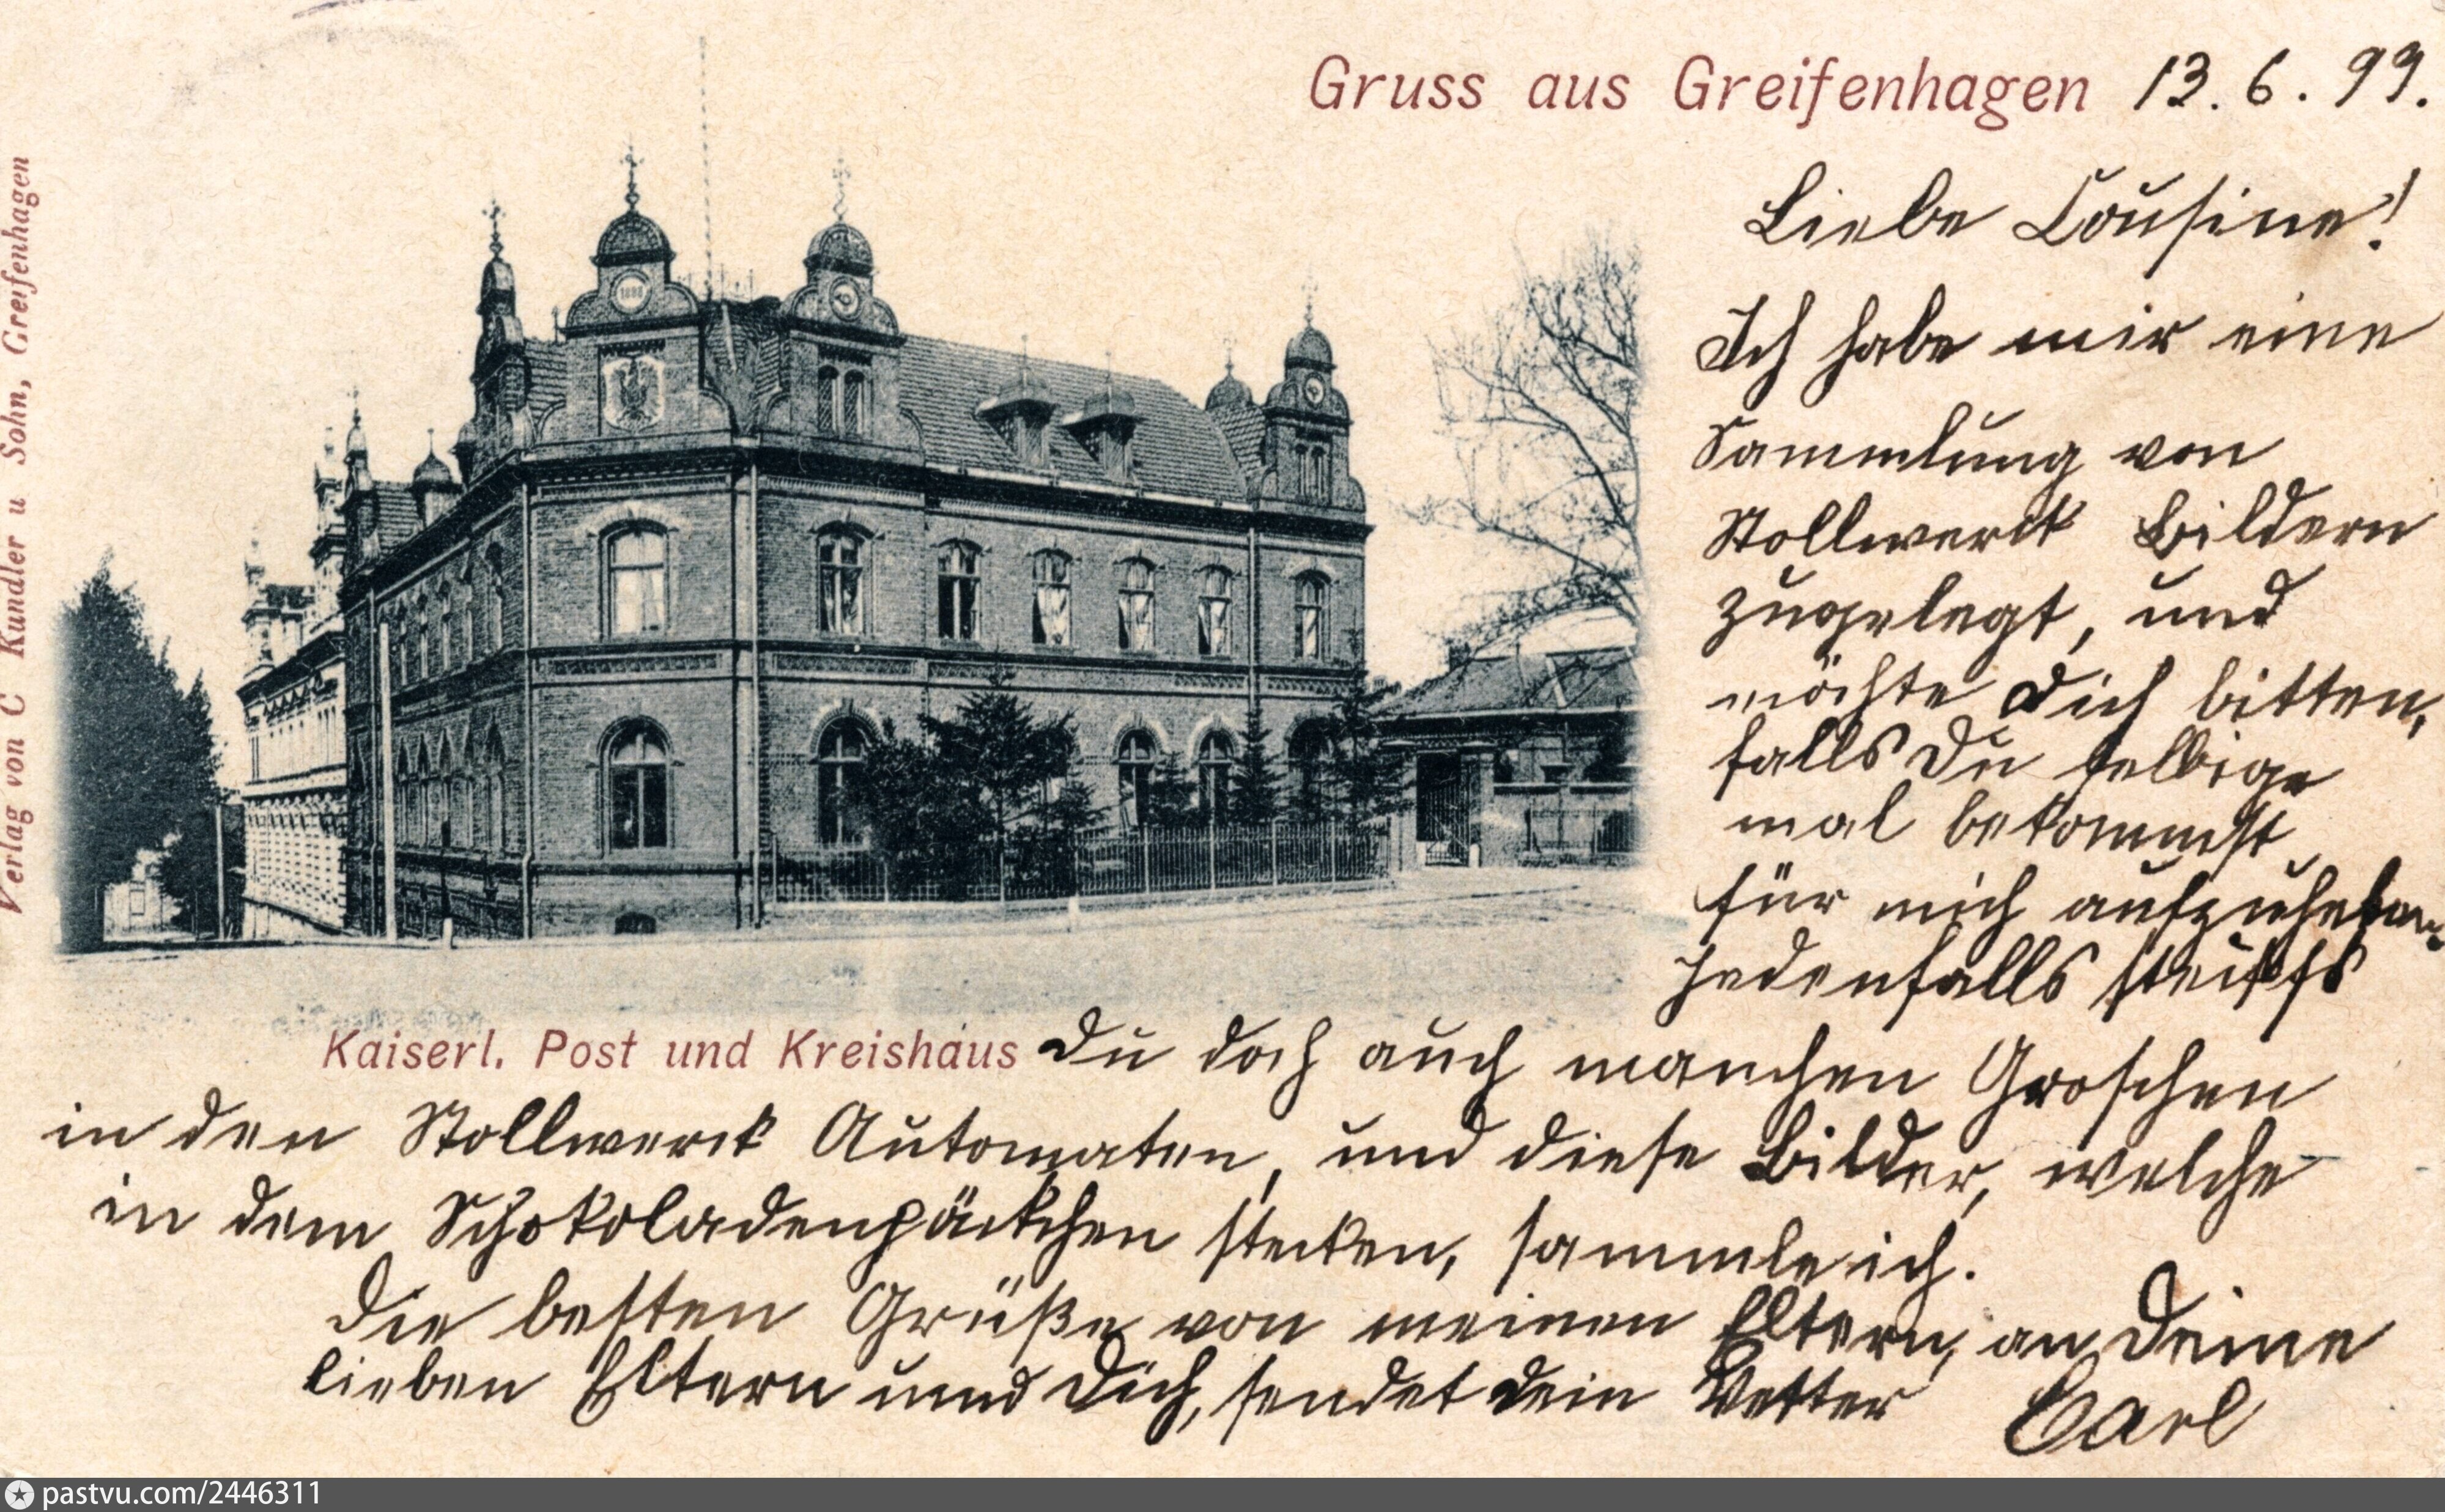 Gruss aus Greifenhagen 13. 6. 99.
Liebe Cousine!
Ich habe mir eine
Sammlung von
Stollwerck Bildern
zugelegt, und
möchte Dich bitten,
falls Du selbige
mal bekommst
für mich aufzuheben.
Jedenfalls steckst
Kaiserl. Post und Kreishaus
Du doch auch manchen Groschen
in den Stollwerck Automaten, und diese Bilder, welche
in dem Schokoladenpäckchen stecken, sammle ich.
Die besten Grüße von meinen Eltern, an Deine
lieben Eltern und Dich, sendet Dein Vetter Carl
Verlag von C Kundler u Sohn, Greifenhagen
pastvu.com/2446311